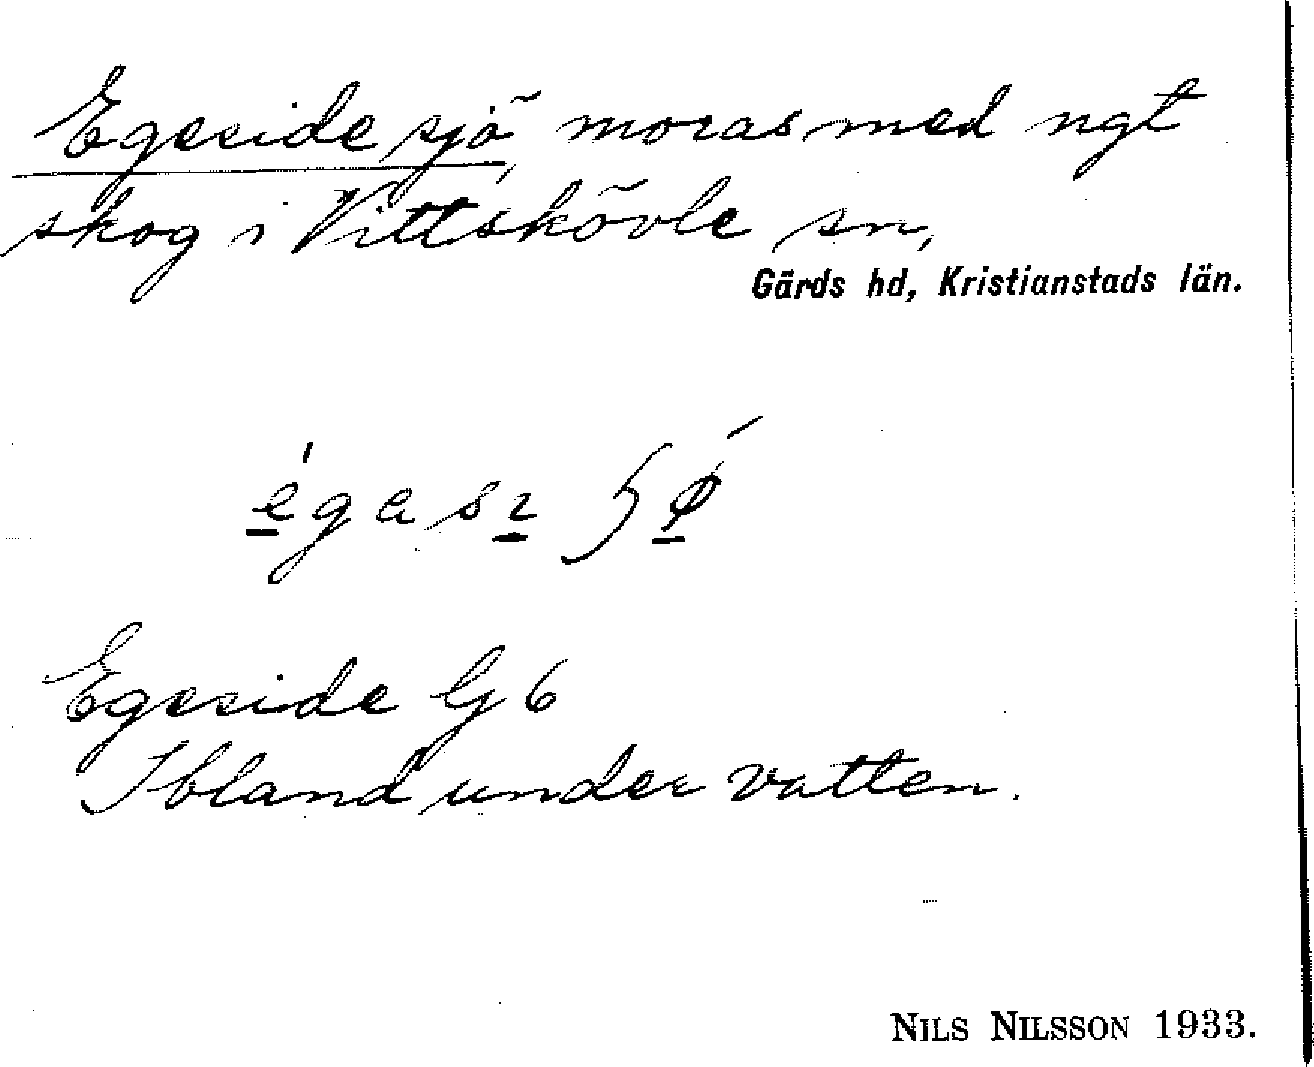 Egeside sjö, moras med ngt
skog i Vittskövle sn,
Gärds hd, Kristianstads län.
Egeside G 6
Ibland under vatten.
NILS NILSSON 1933.